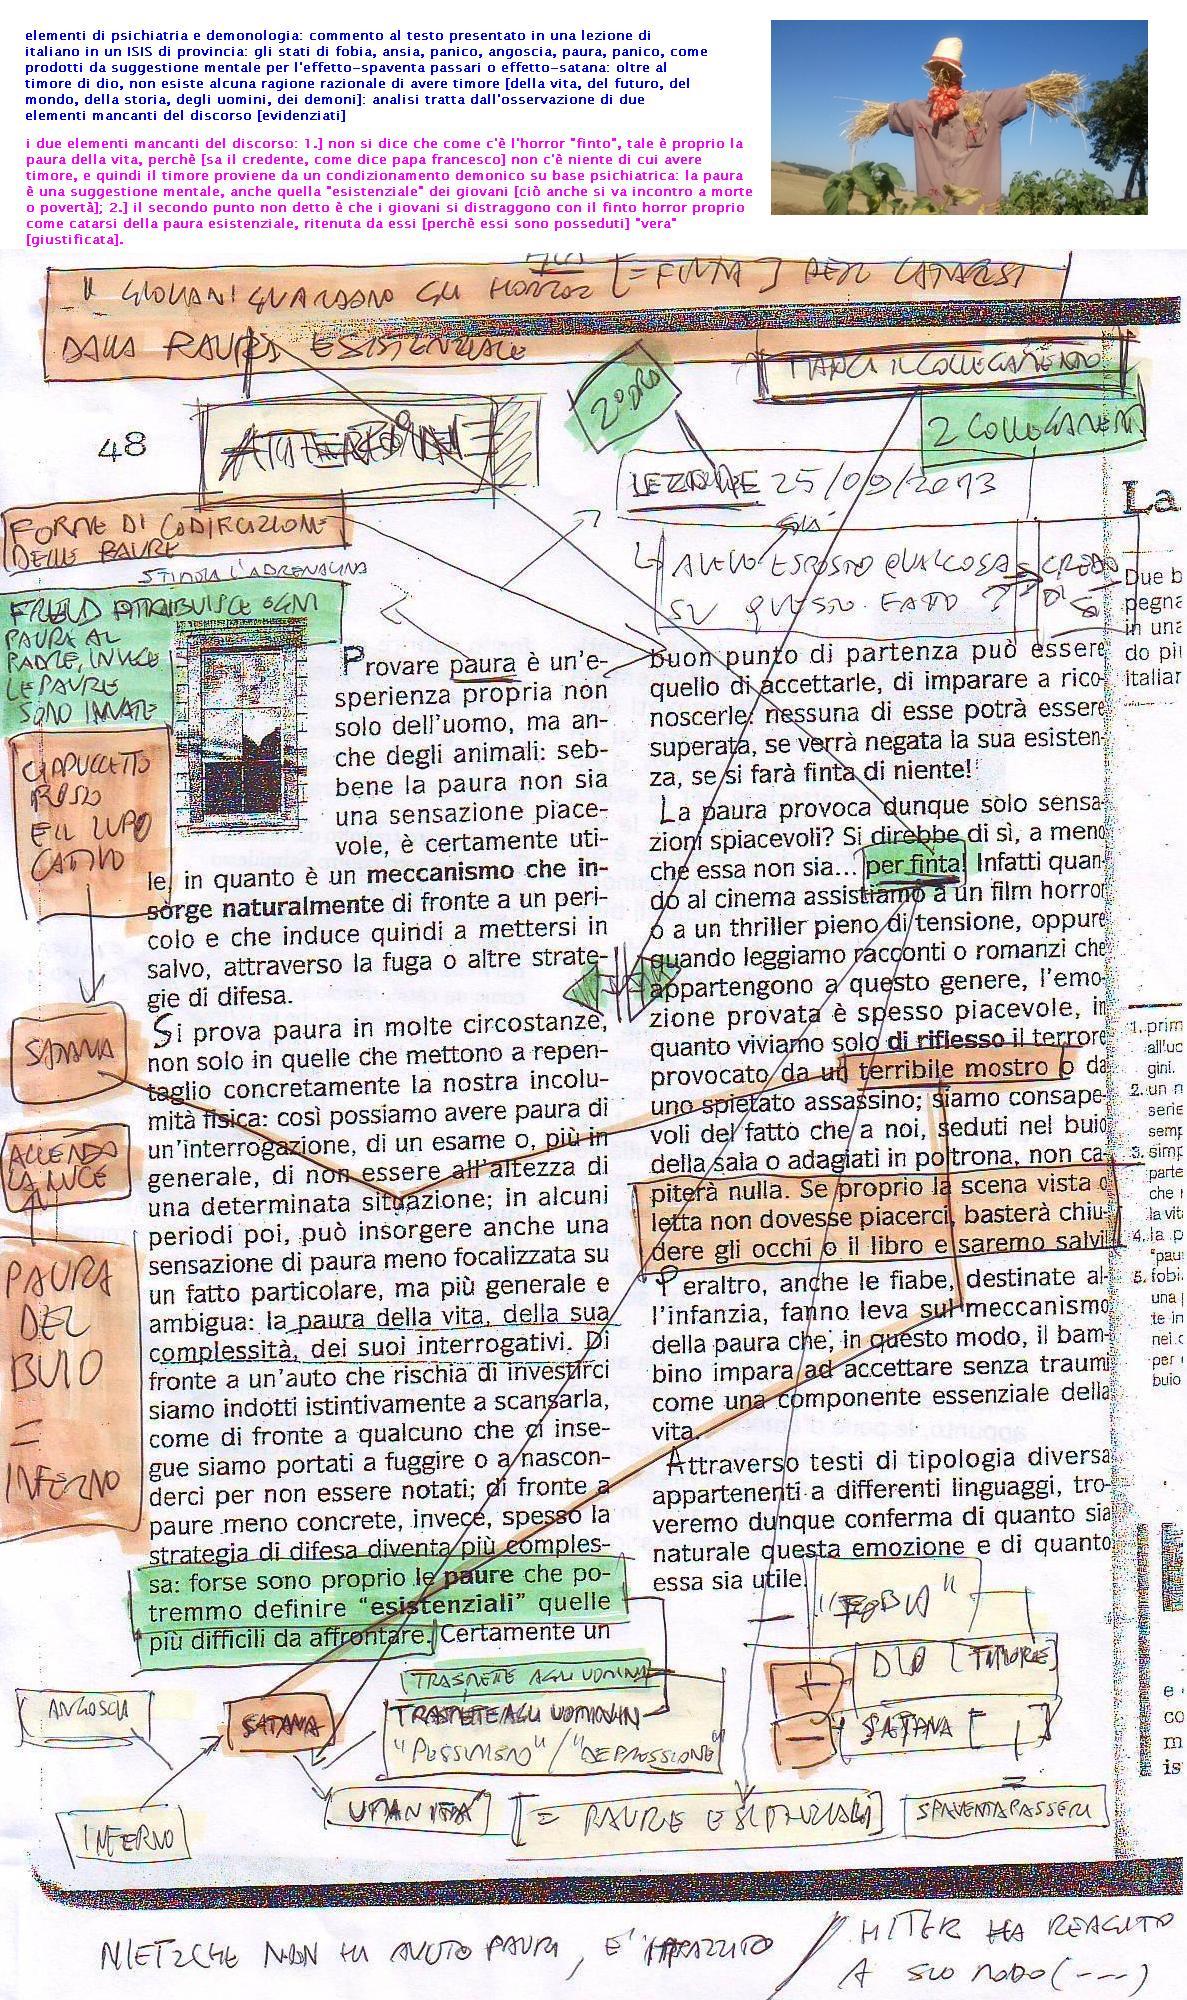 elementi di psichiatria e demonologia: commento al testo presentato in una lezione di
italiano in un ISIS di provincia: gli stati di fobia, ansia, panico, angoscia, paura, panico, come
prodotti da suggestione mentale per l'effetto-spaventa passari o effetto-satana: oltre al
timore di dio, non esiste alcuna ragione razionale di avere timore [della vita, del futuro, del
mondo, della storia, degli uomini, dei demoni]: analisi tratta dall'osservazione di due
elementi mancanti del discorso [evidenziati]
i due elementi mancanti del discorso: 1.] non si dice che come c'è l'horror "finto", tale è proprio la
paura della vita, perchè [sa il credente, come dice papa francesco] non c'è niente di cui avere
timore, e quindi il timore proviene da un condizionamento demonico su base psichiatrica: la paura
è una suggestione mentale, anche quella "esistenziale" dei giovani [ciò anche si va incontro a morte
o povertà]; 2.] il secondo punto non detto è che i giovani si distraggono con il finto horror proprio
come catarsi della paura esistenziale, ritenuta da essi [perchè essi sono posseduti] "vera"
[giustificata].
GIOVANI GUARDANO GLI HORROR [= FINTA] PER CATARSI
DALLA PAURA ESISTENZIALE
MANCA IL COLLEGAMENTO
2 COLLEGAMENTI
48
LEZIONE 25/09/2013
AVEVO ESPOSTO QUALCOSA CREDO
SU QUESTO FATTO ? DI SÌ
FORME DI CODIFICAZIONE
DELLE PAURE
STIMOLA L'ADRENALINA
FREUD ATTRIBUISCE OGNI
PAURA AL
PADRE, INVECE
LE PAURE
SONO INNATE
CAPPUCCETTO
ROSSO
E IL LUPO
CATTIVO
SATANA
ACCENDO
LA LUCE
PAURA
DEL
BUIO
=
INFERNO
Provare paura è un'e-
sperienza propria non
solo dell'uomo, ma an-
che degli animali: seb-
bene la paura non sia
una sensazione piace-
vole, è certamente uti-
le, in quanto è un meccanismo che in-
sorge naturalmente di fronte a un peri-
colo e che induce quindi a mettersi in
salvo, attraverso la fuga o altre strate-
gie di difesa.
Si prova paura in molte circostanze,
non solo in quelle che mettono a repen-
taglio concretamente la nostra incolu-
mità fisica: così possiamo avere paura di
un'interrogazione, di un esame o, più in
generale, di non essere all'altezza di
una determinata situazione; in alcuni
periodi poi, può insorgere anche una
sensazione di paura meno focalizzata su
un fatto particolare, ma più generale e
ambigua: la paura della vita, della sua
complessità, dei suoi interrogativi. Di
fronte a un'auto che rischia di investirci
siamo indotti istintivamente a scansarla,
come di fronte a qualcuno che ci inse-
gue siamo portati a fuggire o a nascon-
derci per non essere notati; di fronte a
paure meno concrete, invece, spesso la
strategia di difesa diventa più comples-
sa: forse sono proprio le paure che po-
tremmo definire "esistenziali" quelle
più difficili da affrontare. Certamente un
buon punto di partenza può essere
quello di accettarle, di imparare a rico-
noscerle: nessuna di esse potrà essere
superata, se verrà negata la sua esisten-
za, se si farà finta di niente!
La paura provoca dunque solo sensa-
zioni spiacevoli? Si direbbe di sì, a meno
che essa non sia... per finta! Infatti quan-
do al cinema assistiamo a un film horror
o a un thriller pieno di tensione, oppure
quando leggiamo racconti o romanzi che
appartengono a questo genere, l'emo-
zione provata è spesso piacevole, in
quanto viviamo solo di riflesso il terrore
provocato da un terribile mostro o da
uno spietato assassino; siamo consape-
voli del fatto che a noi, seduti nel buio
della sala o adagiati in poltrona, non ca-
piterà nulla. Se proprio la scena vista o
letta non dovesse piacerci, basterà chiu-
dere gli occhi o il libro e saremo salvi!
Peraltro, anche le fiabe, destinate al-
l'infanzia, fanno leva sul meccanismo
della paura che, in questo modo, il bam-
bino impara ad accettare senza traumi
come una componente essenziale della
vita.
Attraverso testi di tipologia diversa
appartenenti a differenti linguaggi, tro-
veremo dunque conferma di quanto sia
naturale questa emozione e di quanto
essa sia utile.
La
Due b
pegna
in una
do pi
italiar
1. prim
all'uc
gini.
2. un n
serie
semp
3. simp
parte
che
la vit
4. la p
"pau
5. fobi
una
te in
nei c
per
buio
e
co
m
is
"FOBIA"
+ DIO [TIMORE]
- SATANA [
SPAVENTAPASSERI
ANGOSCIA
SATANA
INFERNO
TRASMETTE AGLI UOMINI
TRASMETTE AGLI UOMINI
"PESSIMISMO" / "DEPRESSIONE"
UMANITÀ [= PAURE ESISTENZIALI]
NIETZCHE NON HA AVUTO PAURA, E' IMPAZZITO / HITLER HA REAGITO
A SUO MODO (---)